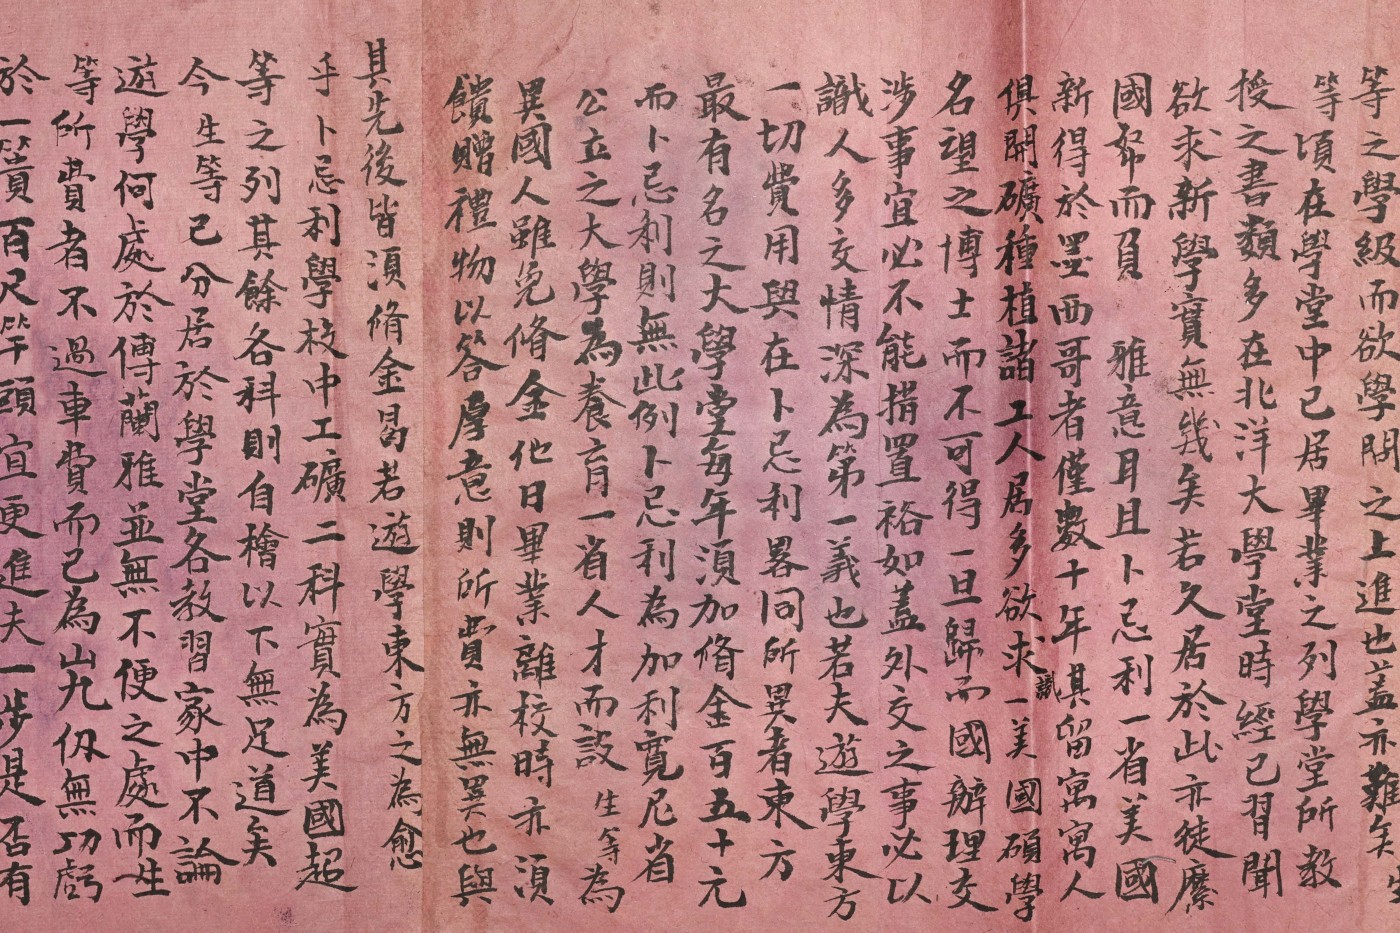 等之學級而欲學問之上進也蓋亦難矣生
等頃在學堂中已居畢業之列學堂所教
授之書類多在北洋大學堂時經已習聞
欲求新學實無幾矣若久居於此亦徒縻
國帑而負 雅意耳且卜忌利一省美國
新得於墨西哥者僅數十年其留寓寓人
俱開礦種植諸工人居多欲求識一美國碩學
名望之博士而不可得一旦歸而國辦理交
涉事宜必不能措置裕如蓋外交之事必以
識人多交情深為第一義也若夫遊學東方
一切費用與在卜忌利畧同所異者東方
最有名之大學堂每年須加脩金百五十元
而卜忌利則無此例卜忌利為加利寛尼省
公立之大學為養育一省人才而設生等為
異國人雖免脩金他日畢業離校時亦須
饋贈禮物以答厚意則所費亦無異也與
其先後皆須脩金曷若遊學東方之為愈
乎卜忌利學校中工礦二科實為美國超
等之列其餘各科則自檜以下無足道矣
今生等已分居於學堂各教習家中不論
遊學何處於傅蘭雅並無不便之處而生
等所費者不過車費而已為山九仞無功虧
於一簣百尺竿頭宜更進夫一步是否有